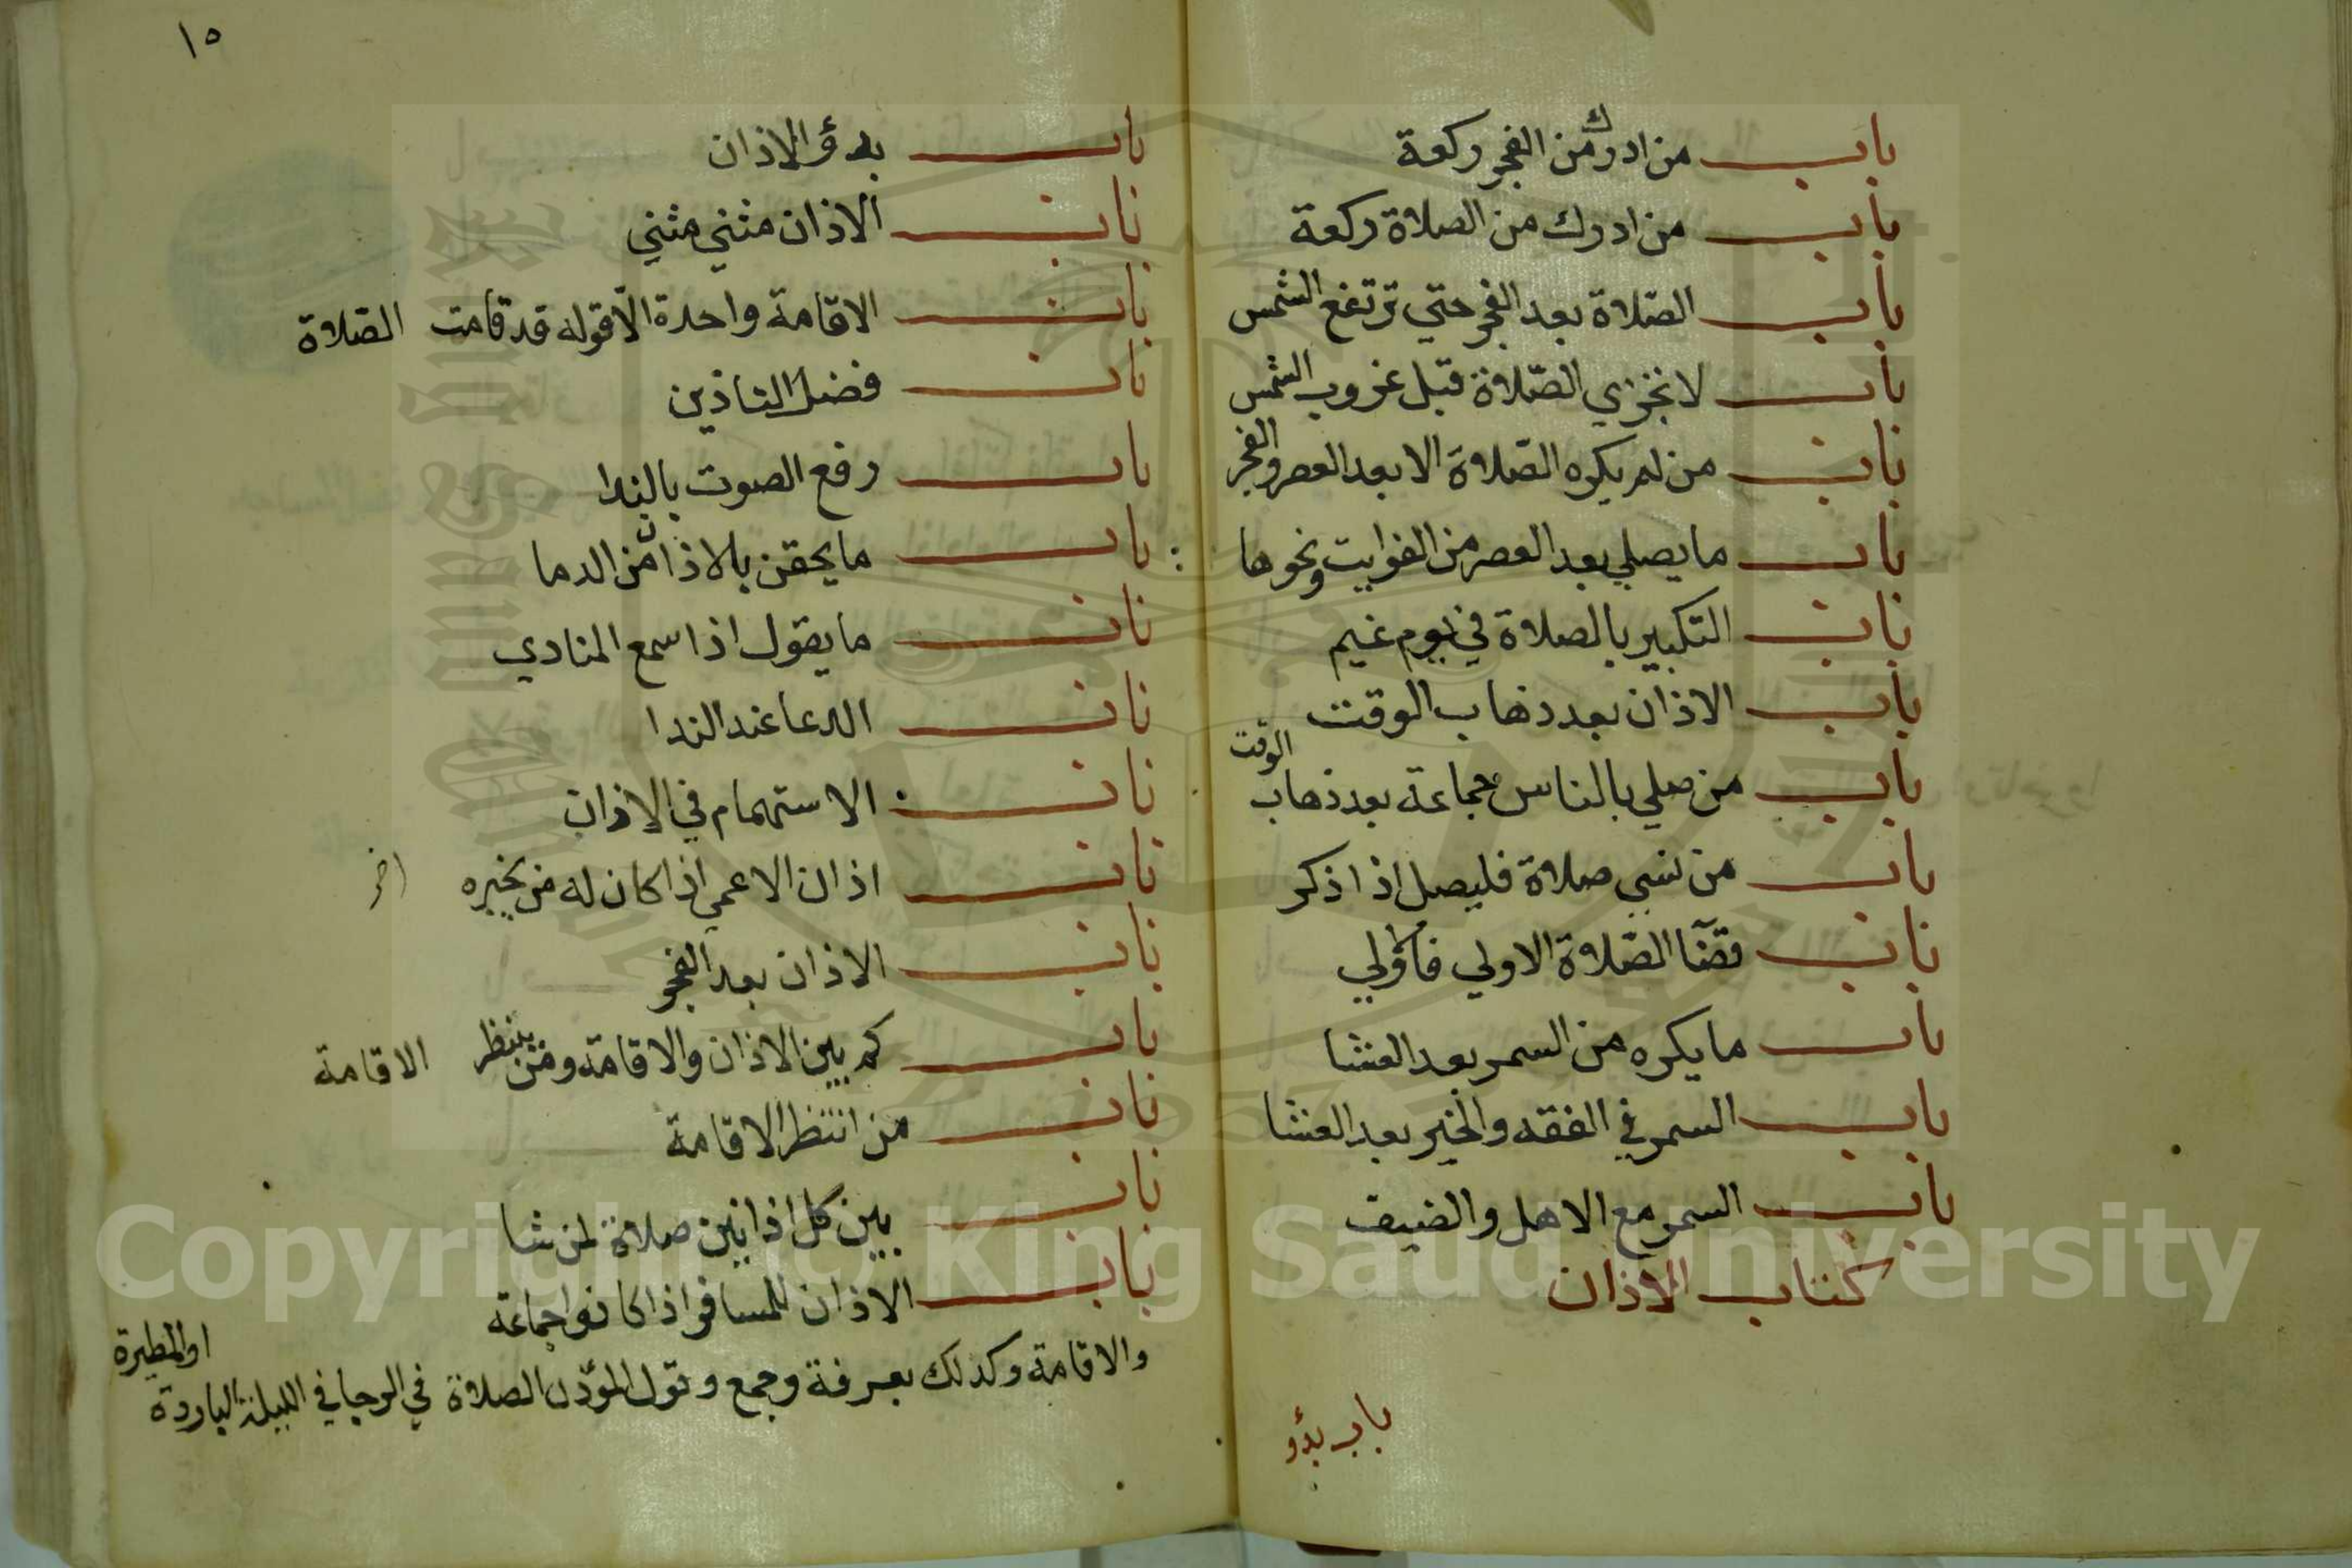 باب من ادرك من الفجر ركعة
باب من ادرك من الصلاة ركعة
باب الصلاة بعد الفجر حتي ترتفع الشمس
باب لا تحزي الصلاة قبل غروب الشمس
باب من لم يكره الصلاة الا بعد العصر والفجر
باب ما يصلي بعد العصر من الفوايت ونحوها
باب التكبير بالصلاة في يوم غيم
باب الاذان بعد ذهاب الوقت
باب من صلي بالناس جماعة بعد ذهاب الوقت
باب من نسي صلاة فليصل اذا ذكر
باب قضا الصلاة الاولي فالاولي
باب ما يكره من السمر بعد العشا
باب السمر في الفقه والخير بعد العشا
باب السمر مع الاهل والضيف
كتاب الاذان
باب بدؤ
١٥
باب بدؤ الاذان
باب الاذان مثني مثني
باب الاقامة واحدة الا قوله قد قامت الصلاة
باب فضل التاذين
باب رفع الصوت بالندا
باب ما يحقن بالاذان من الدما
باب ما يقول اذا سمع المنادي
باب الدعا عند الندا
باب الاستهمام في الاذان
باب اذان الاعمي اذا كان له من يخبره
باب الاذان بعد الفجر
باب كم بين الاذان والاقامة ومن ينتظر الاقامة
باب من انتظر الاقامة
باب بين كل اذانين صلاة لمن شا
باب الاذان للمسافر اذا كانوا جماعة
والاقامة وكذلك بعرفة وجمع وقول المؤذن الصلاة في الرحا في الليلة الباردة او المطيرة
Copyright © King Saud University